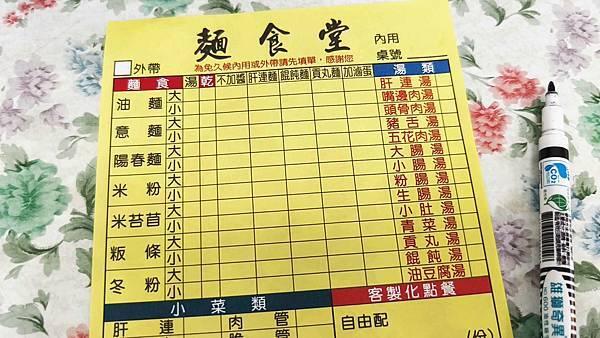 麵食堂
內用
桌號
外帶
為免久候內用或外帶請先填單，感謝您
麵食 湯 乾 不加醬 肝連麵 餛飩麵 貢丸麵 加滷蛋 湯類
油麵 大 小
意麵 大 小
陽春麵 大 小
米粉 大 小
米苔苜 大 小
粄條 大 小
冬粉 大 小
肝連湯
嘴邊肉湯
頭骨肉湯
豬舌湯
五花肉湯
大腸湯
小腸湯
粉腸湯
生腸湯
小肚湯
青菜湯
貢丸湯
餛飩湯
油豆腐湯
小菜類
客製化點餐
肝連 肉管
自由配
脆管
(份)
CO2
雄獅奇異